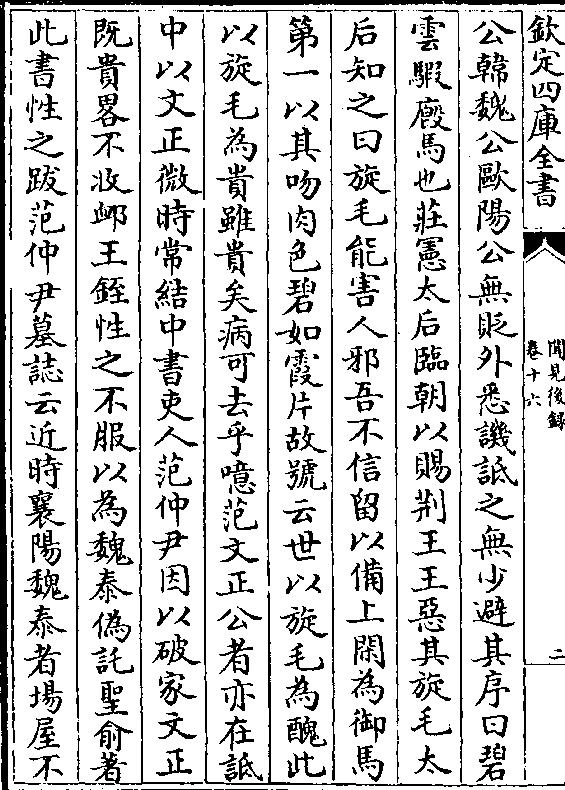 欽定四庫全書
聞見後錄
卷十六
二
公韓魏公歐陽公無貶外悉譏詆之無少避其序曰碧
雲騢廄馬也莊憲太后臨朝以賜荆王王惡其旋毛太
后知之曰旋毛能害人邪吾不信留以備上閑為御馬
第一以其吻肉色碧如霞片故號云世以旋毛為醜此
以旋毛為貴雖貴矣病可去乎噫范文正公者亦在詆
中以文正微時常結中書吏人范仲尹因以破家文正
既貴畧不收卹王銍性之不服以為魏泰偽託聖俞著
此書性之跋范仲尹墓誌云近時襄陽魏泰者場屋不